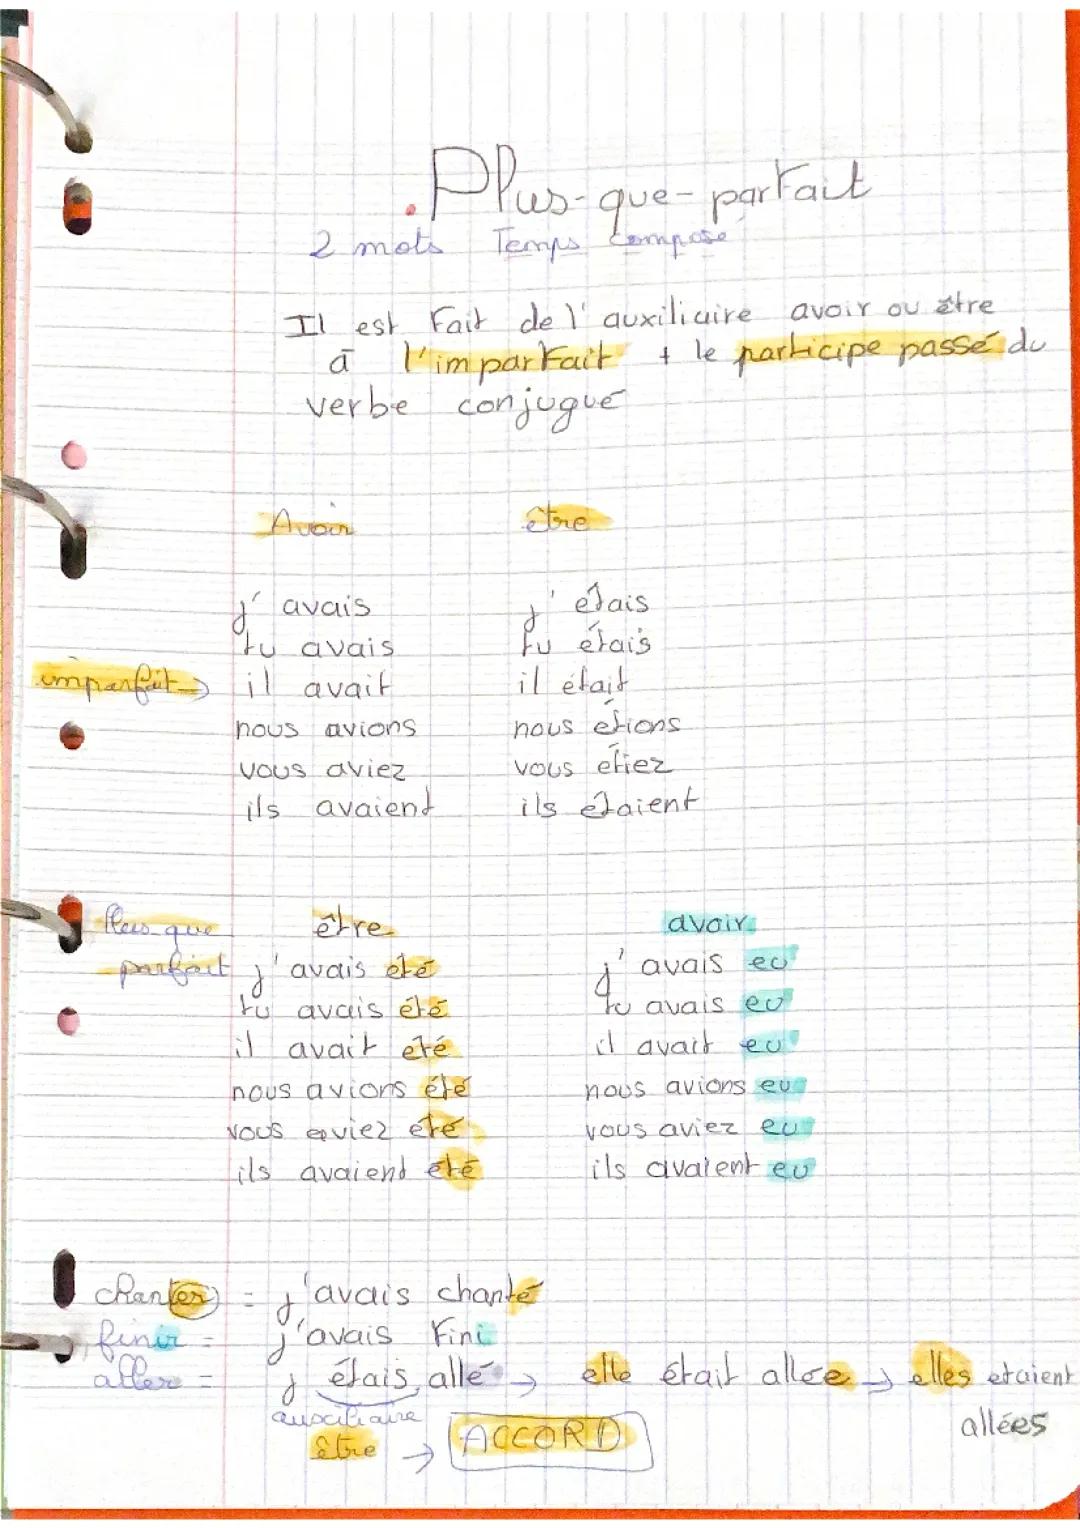 . Plus-que-parfait
2 mots Temps composé
Il est fait de l'auxiliaire avoir ou être
à l'imparfait + le participe passé du
verbe conjugué
Avoir être
j'avais j'étais
tu avais tu étais
imparfait → il avait il était
nous avions nous étions
vous aviez vous étiez
ils avaient ils étaient
Plus que être avoir
parfait j'avais été j'avais eu
tu avais été tu avais eu
il avait été il avait eu
nous avions été nous avions eu
vous aviez été vous aviez eu
ils avaient été ils avaient eu
chanter = j'avais chanté
finir = j'avais fini
aller = j étais allé → elle était allée → elles etaient
auxiliaire allées
être → ACCORD